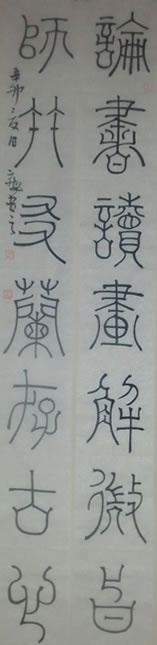 論書讀畫解微旨
師竹友蘭存古心
辛卯之夏月